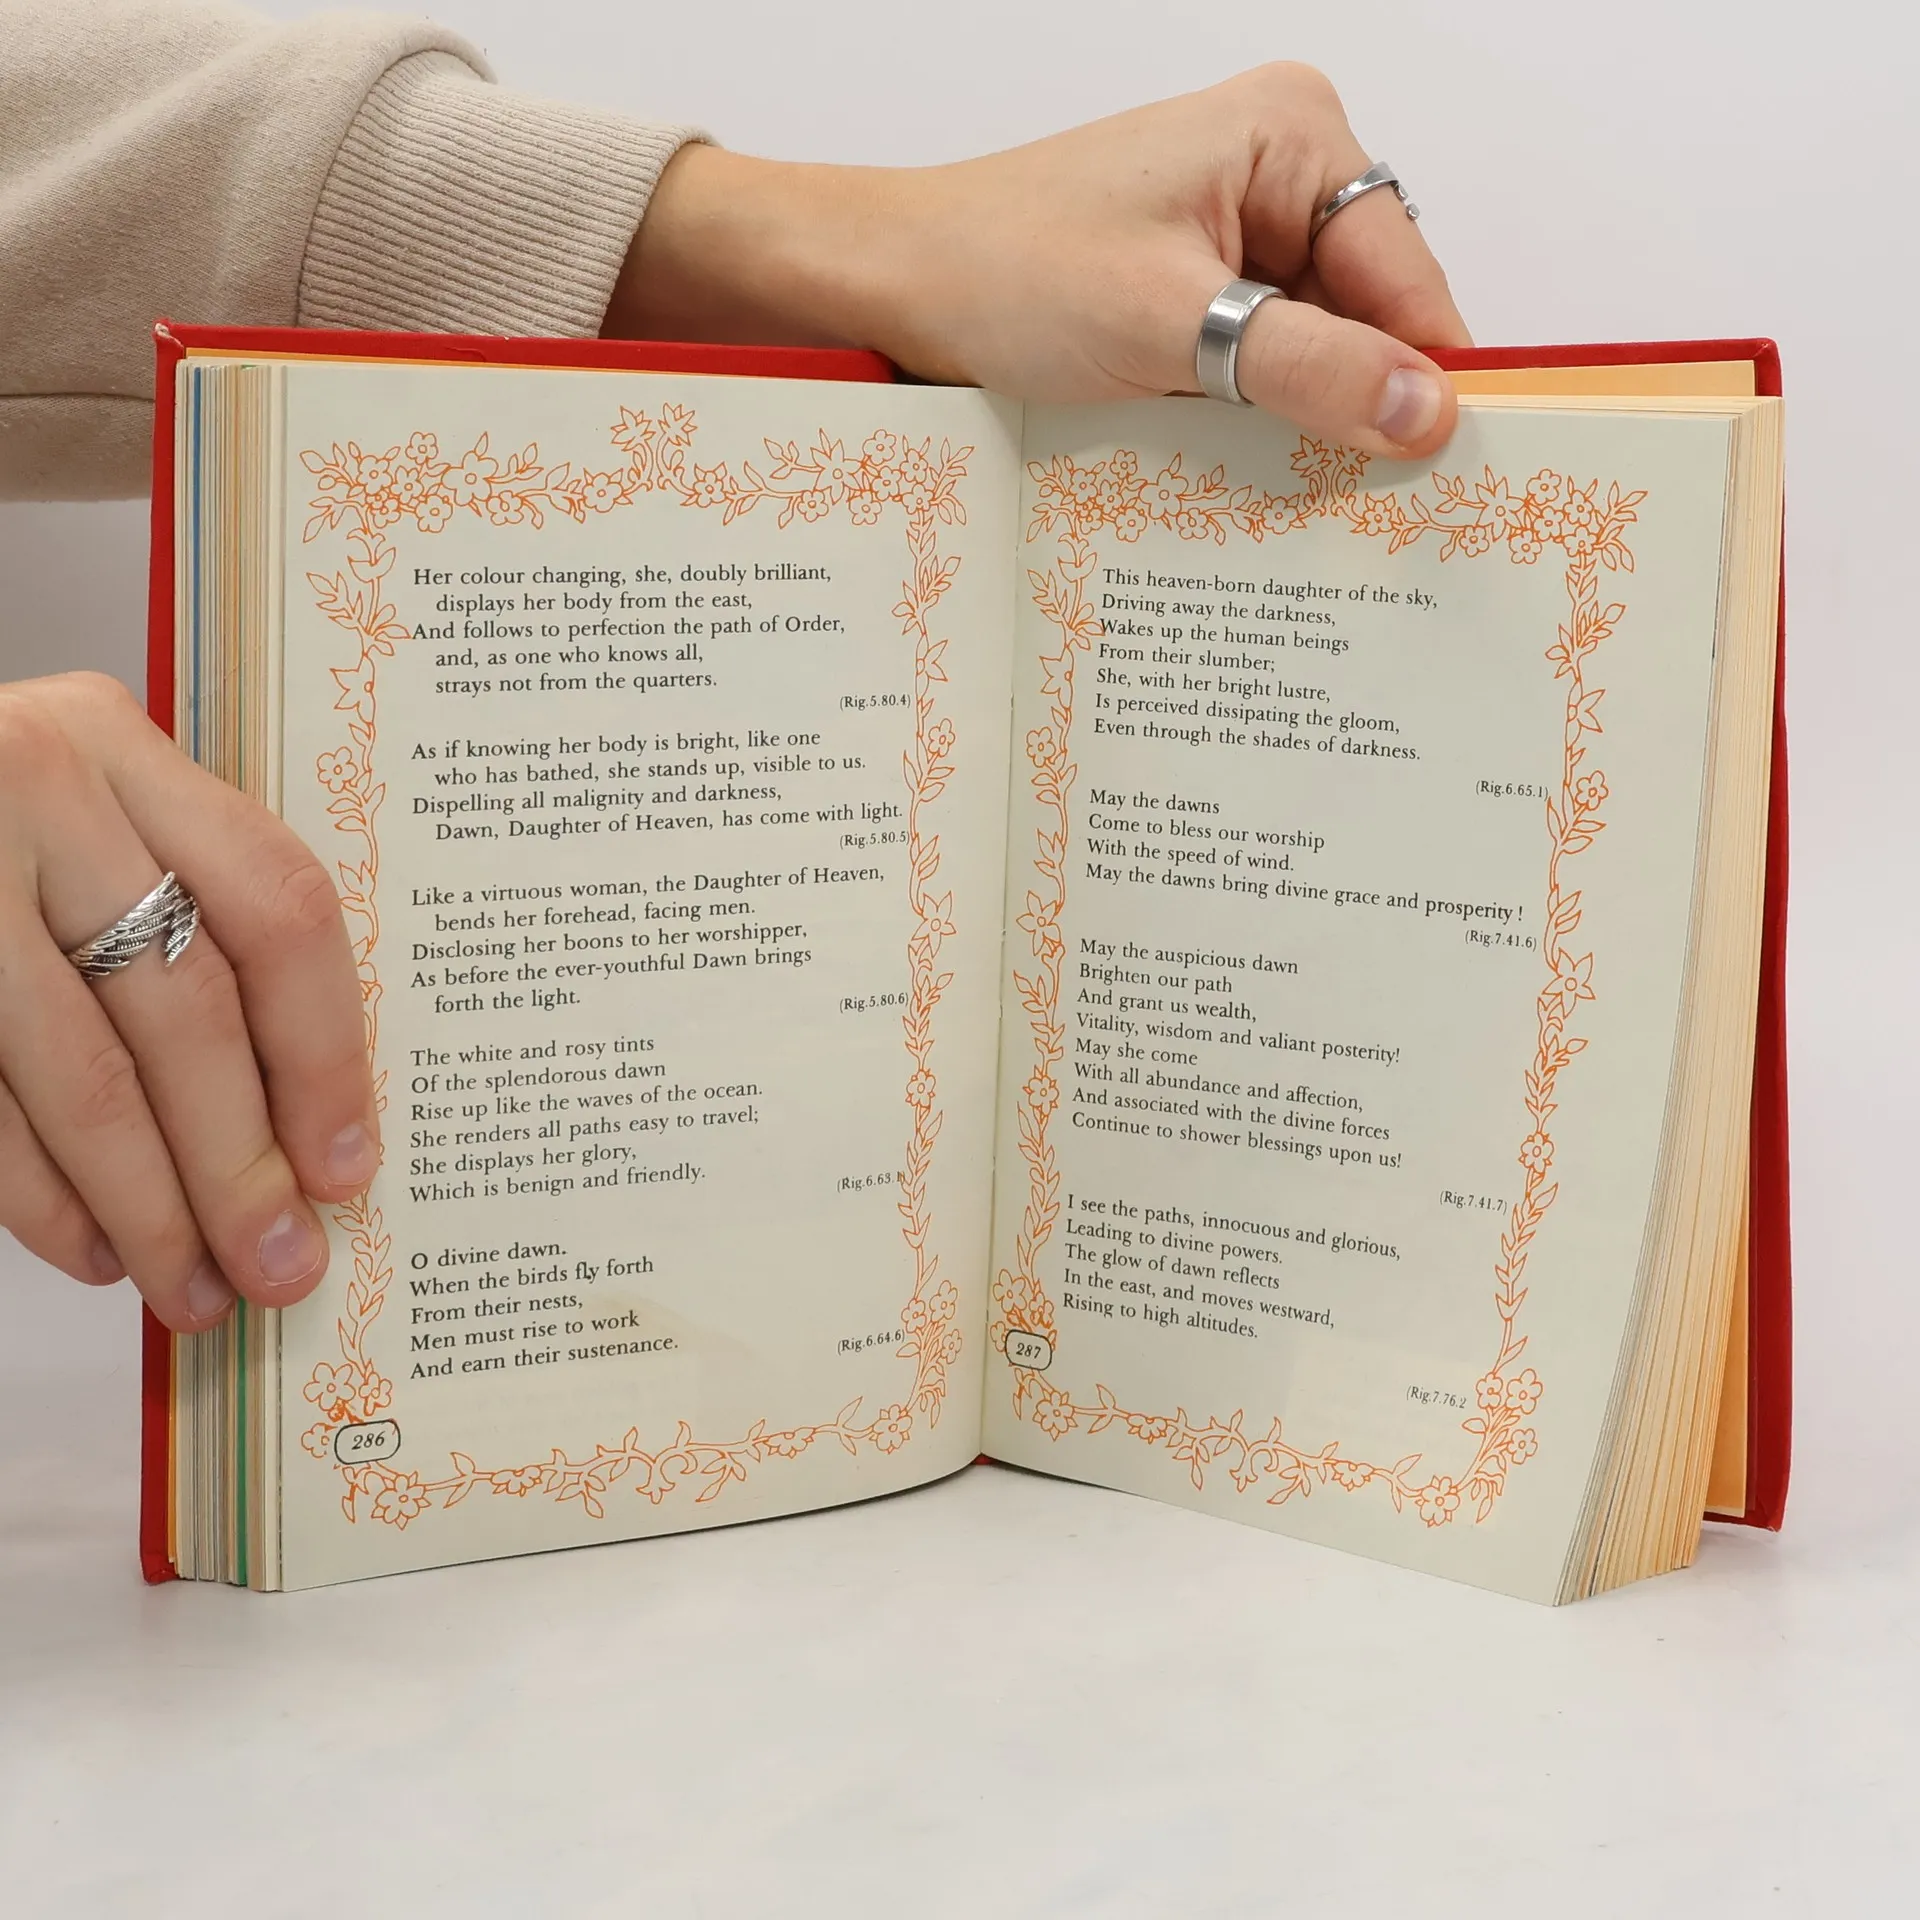 Her colour changing, she, doubly brilliant,
displays her body from the east,
And follows to perfection the path of Order,
and, as one who knows all,
strays not from the quarters.
(Rig.5.80.4)
As if knowing her body is bright, like one
who has bathed, she stands up, visible to us.
Dispelling all malignity and darkness,
Dawn, Daughter of Heaven, has come with light.
(Rig.5.80.5)
Like a virtuous woman, the Daughter of Heaven,
bends her forehead, facing men.
Disclosing her boons to her worshipper,
As before the ever-youthful Dawn brings
forth the light.
(Rig.5.80.6)
The white and rosy tints
Of the splendorous dawn
Rise up like the waves of the ocean.
She renders all paths easy to travel;
She displays her glory,
Which is benign and friendly.
(Rig.6.63.1)
O divine dawn.
When the birds fly forth
From their nests,
Men must rise to work
And earn their sustenance.
(Rig.6.64.6)
286
This heaven-born daughter of the sky,
Driving away the darkness,
Wakes up the human beings
From their slumber;
She, with her bright lustre,
Is perceived dissipating the gloom,
Even through the shades of darkness.
(Rig.6.65.1)
May the dawns
Come to bless our worship
With the speed of wind.
May the dawns bring divine grace and prosperity !
(Rig.7.41.6)
May the auspicious dawn
Brighten our path
And grant us wealth,
Vitality, wisdom and valiant posterity!
May she come
With all abundance and affection,
And associated with the divine forces
Continue to shower blessings upon us!
(Rig.7.41.7)
I see the paths, innocuous and glorious,
Leading to divine powers.
The glow of dawn reflects
In the east, and moves westward,
Rising to high altitudes.
(Rig.7.76.2
287